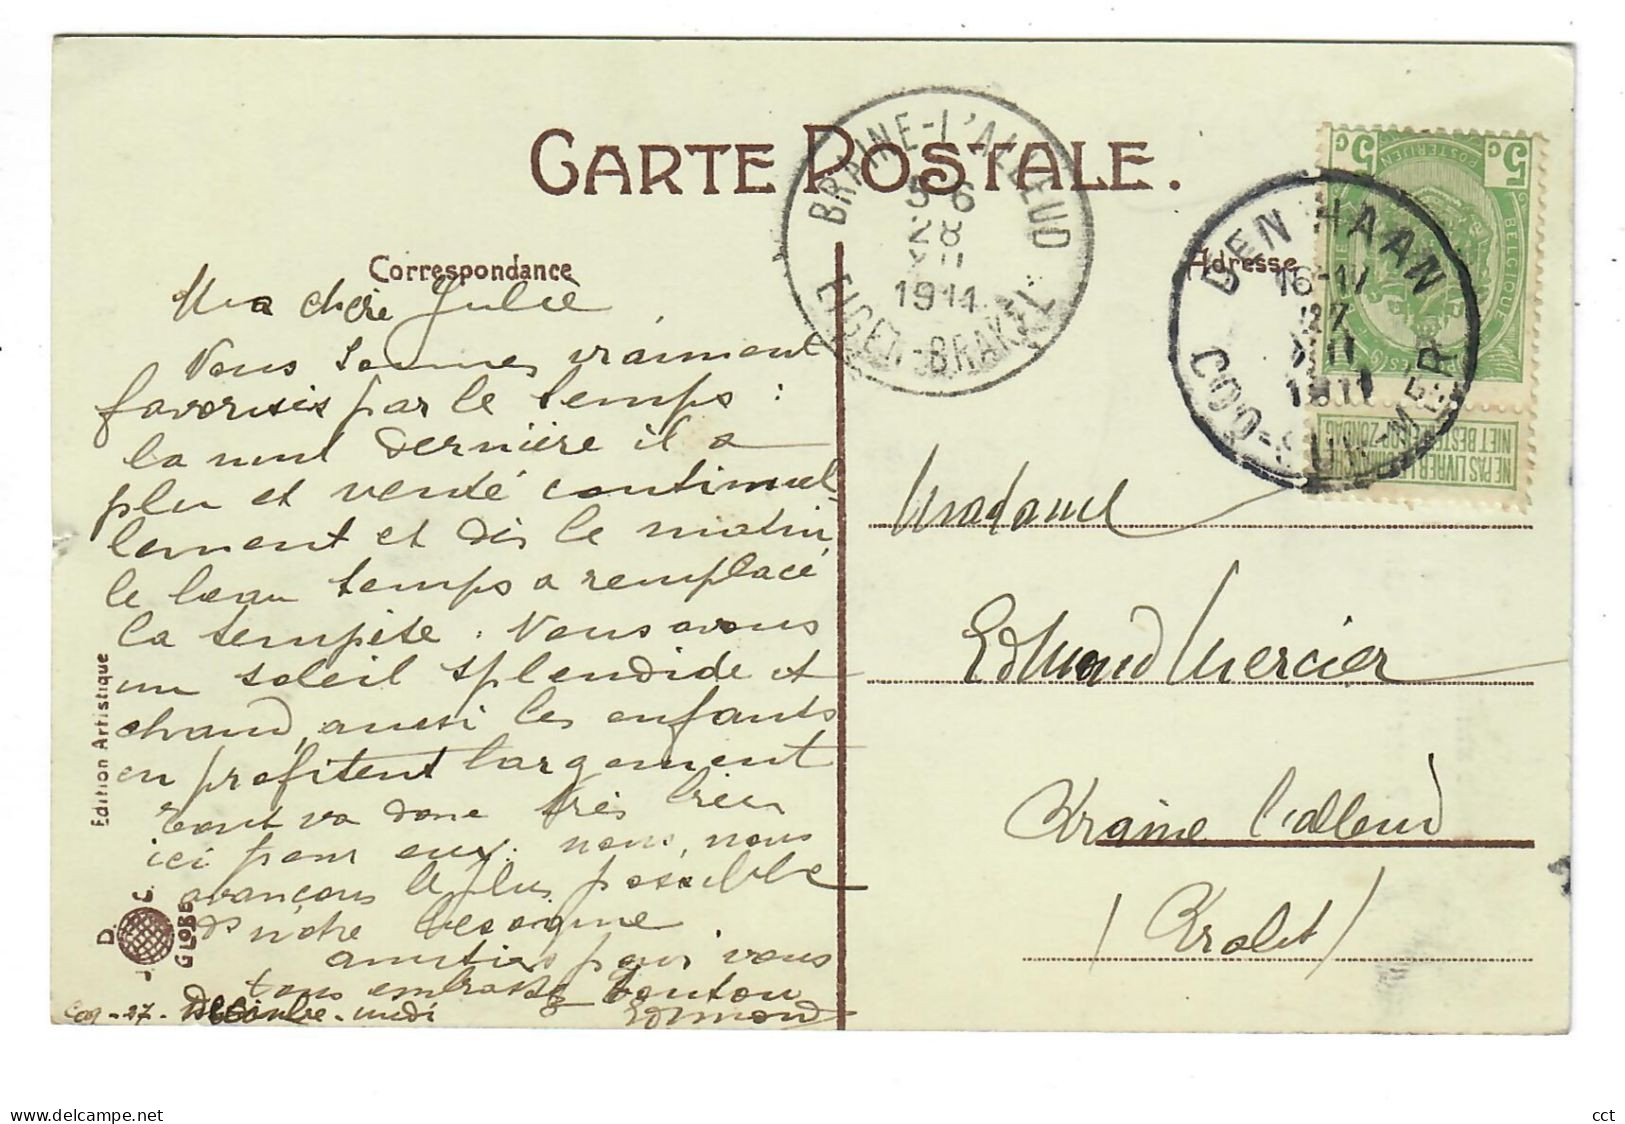 CARTE POSTALE.
Correspondance
Adresse
BRAINE-L'ALLEUD
5-6
28
XII
1911
EIGEN-BRAKEL
DEN HAAN
16-17
27
XII
1911
COQ-SUR-MER
5c 5c
POSTERIJEN
BELGIQUE
NE PAS LIVRER LE DIMANCHE
NIET BESTELLEN OP ZONDAG
Ma chère Julie
Nous sommes vraiment
favorisés par le temps :
la nuit dernière il a
plu et venté continuel-
lement et dès le matin,
le beau temps a remplacé
la tempête. Nous avons
un soleil splendide et
chaud, aussi les enfants
en profitent largement
Tout va donc très bien
ici pour eux. nous, nous
avançons le plus possible
ds notre besogne
amitiés pour vous
tous embrasse Toutou
Edmond
Coq-27-Décembre-midi
Madame
Edmond Mercier
Braine l'alleud
/ Brabt /
Edition Artistique
D.
GLOBE
cct